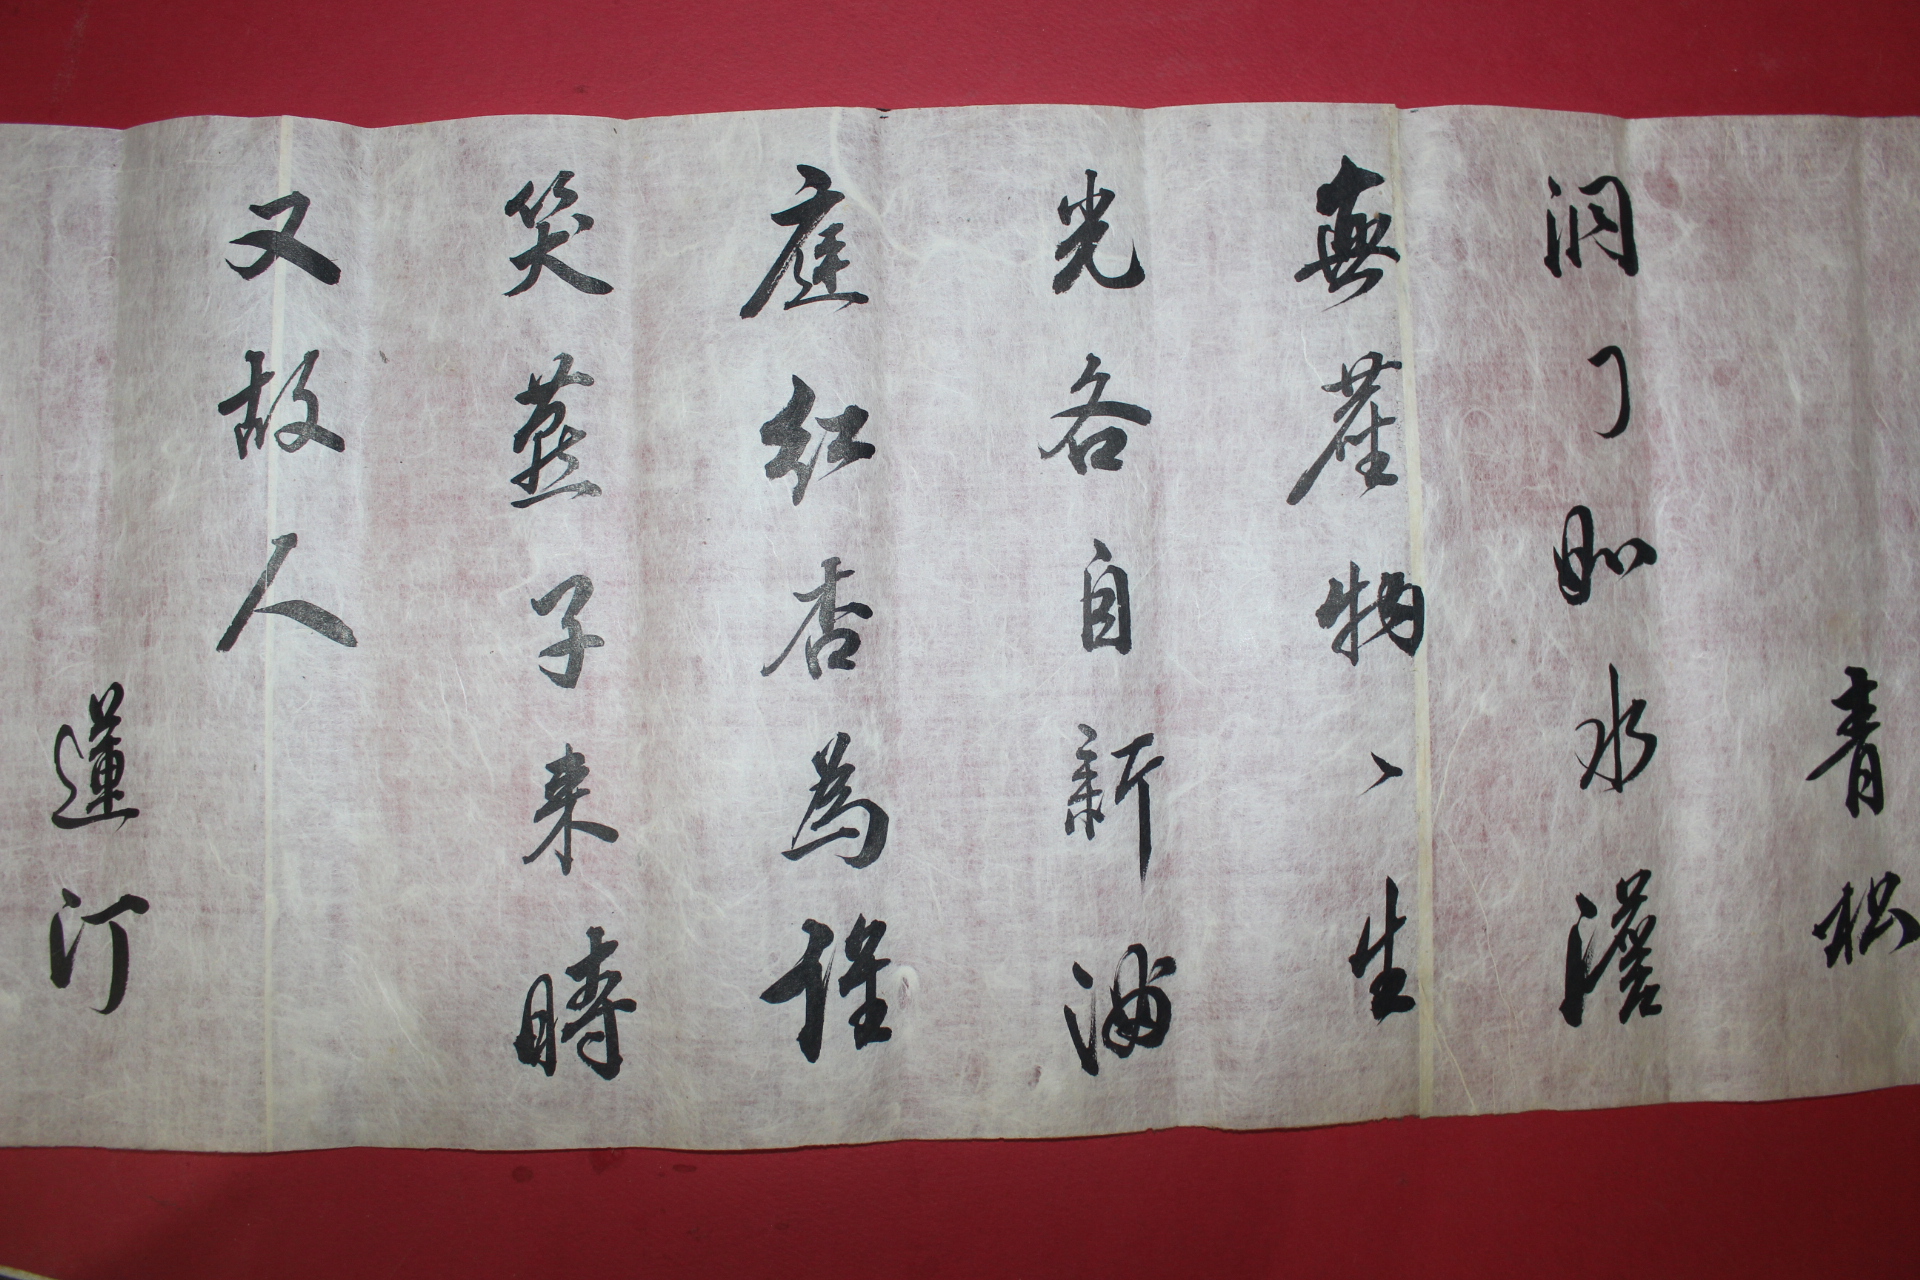 青松
洞门如水澹
無塵物ヽ生
光各自新滿
庭紅杏為誰
笑燕子来時
又故人
蓮汀